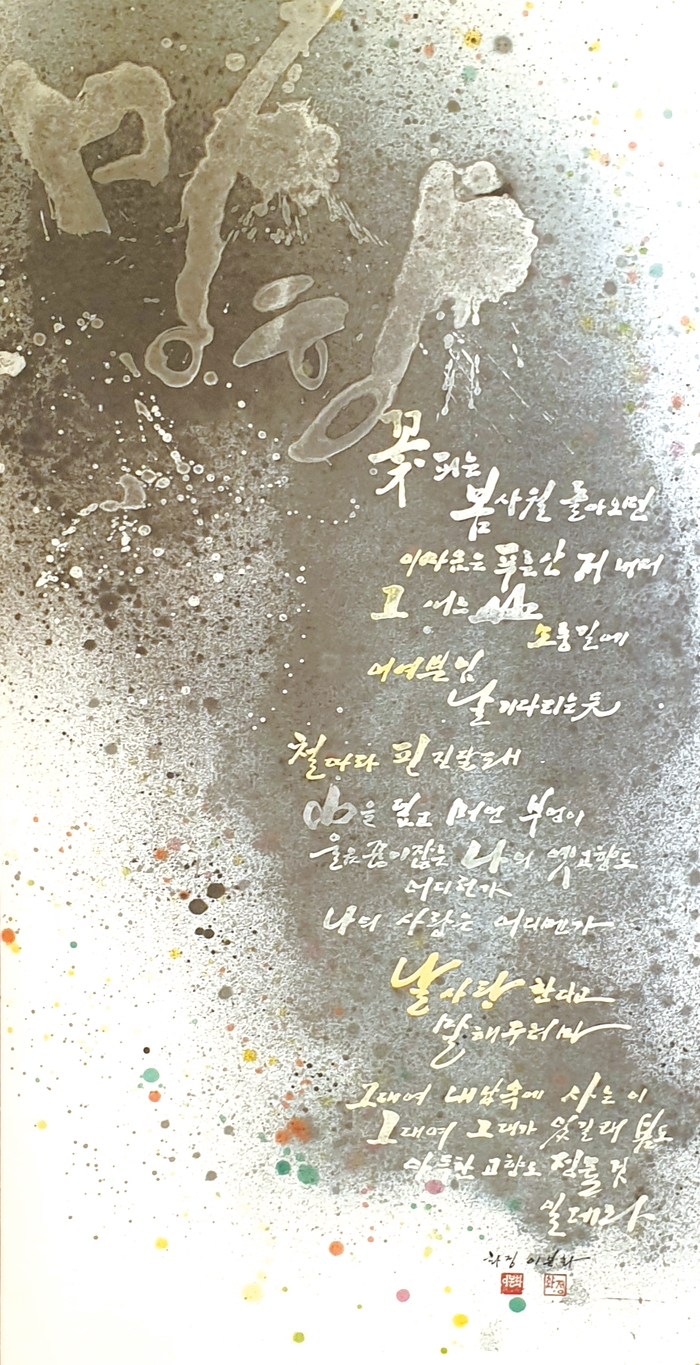 망향
꽃 피는
봄 사월 돌아오면
이 마음은 푸른 산 저 너머
그 어느 산
모퉁길에
어여쁜 님
날 기다리는 듯
철 따라 핀 진달래
산을 덮고 머언 부엉이
울음 끊이잖은 나의 옛 고향도
어디런가
나의 사랑은 어디멘가
날 사랑한다고
말해주려마
그대여 내 맘속에 사는 이
그대여 그대가 있길래 봄도
아득한 고향도 정들 것
일레라
화정
화정